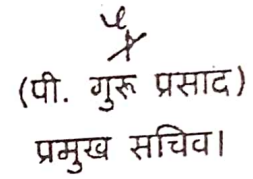 (पी. गुरू प्रसाद)
प्रमुख सचिव।